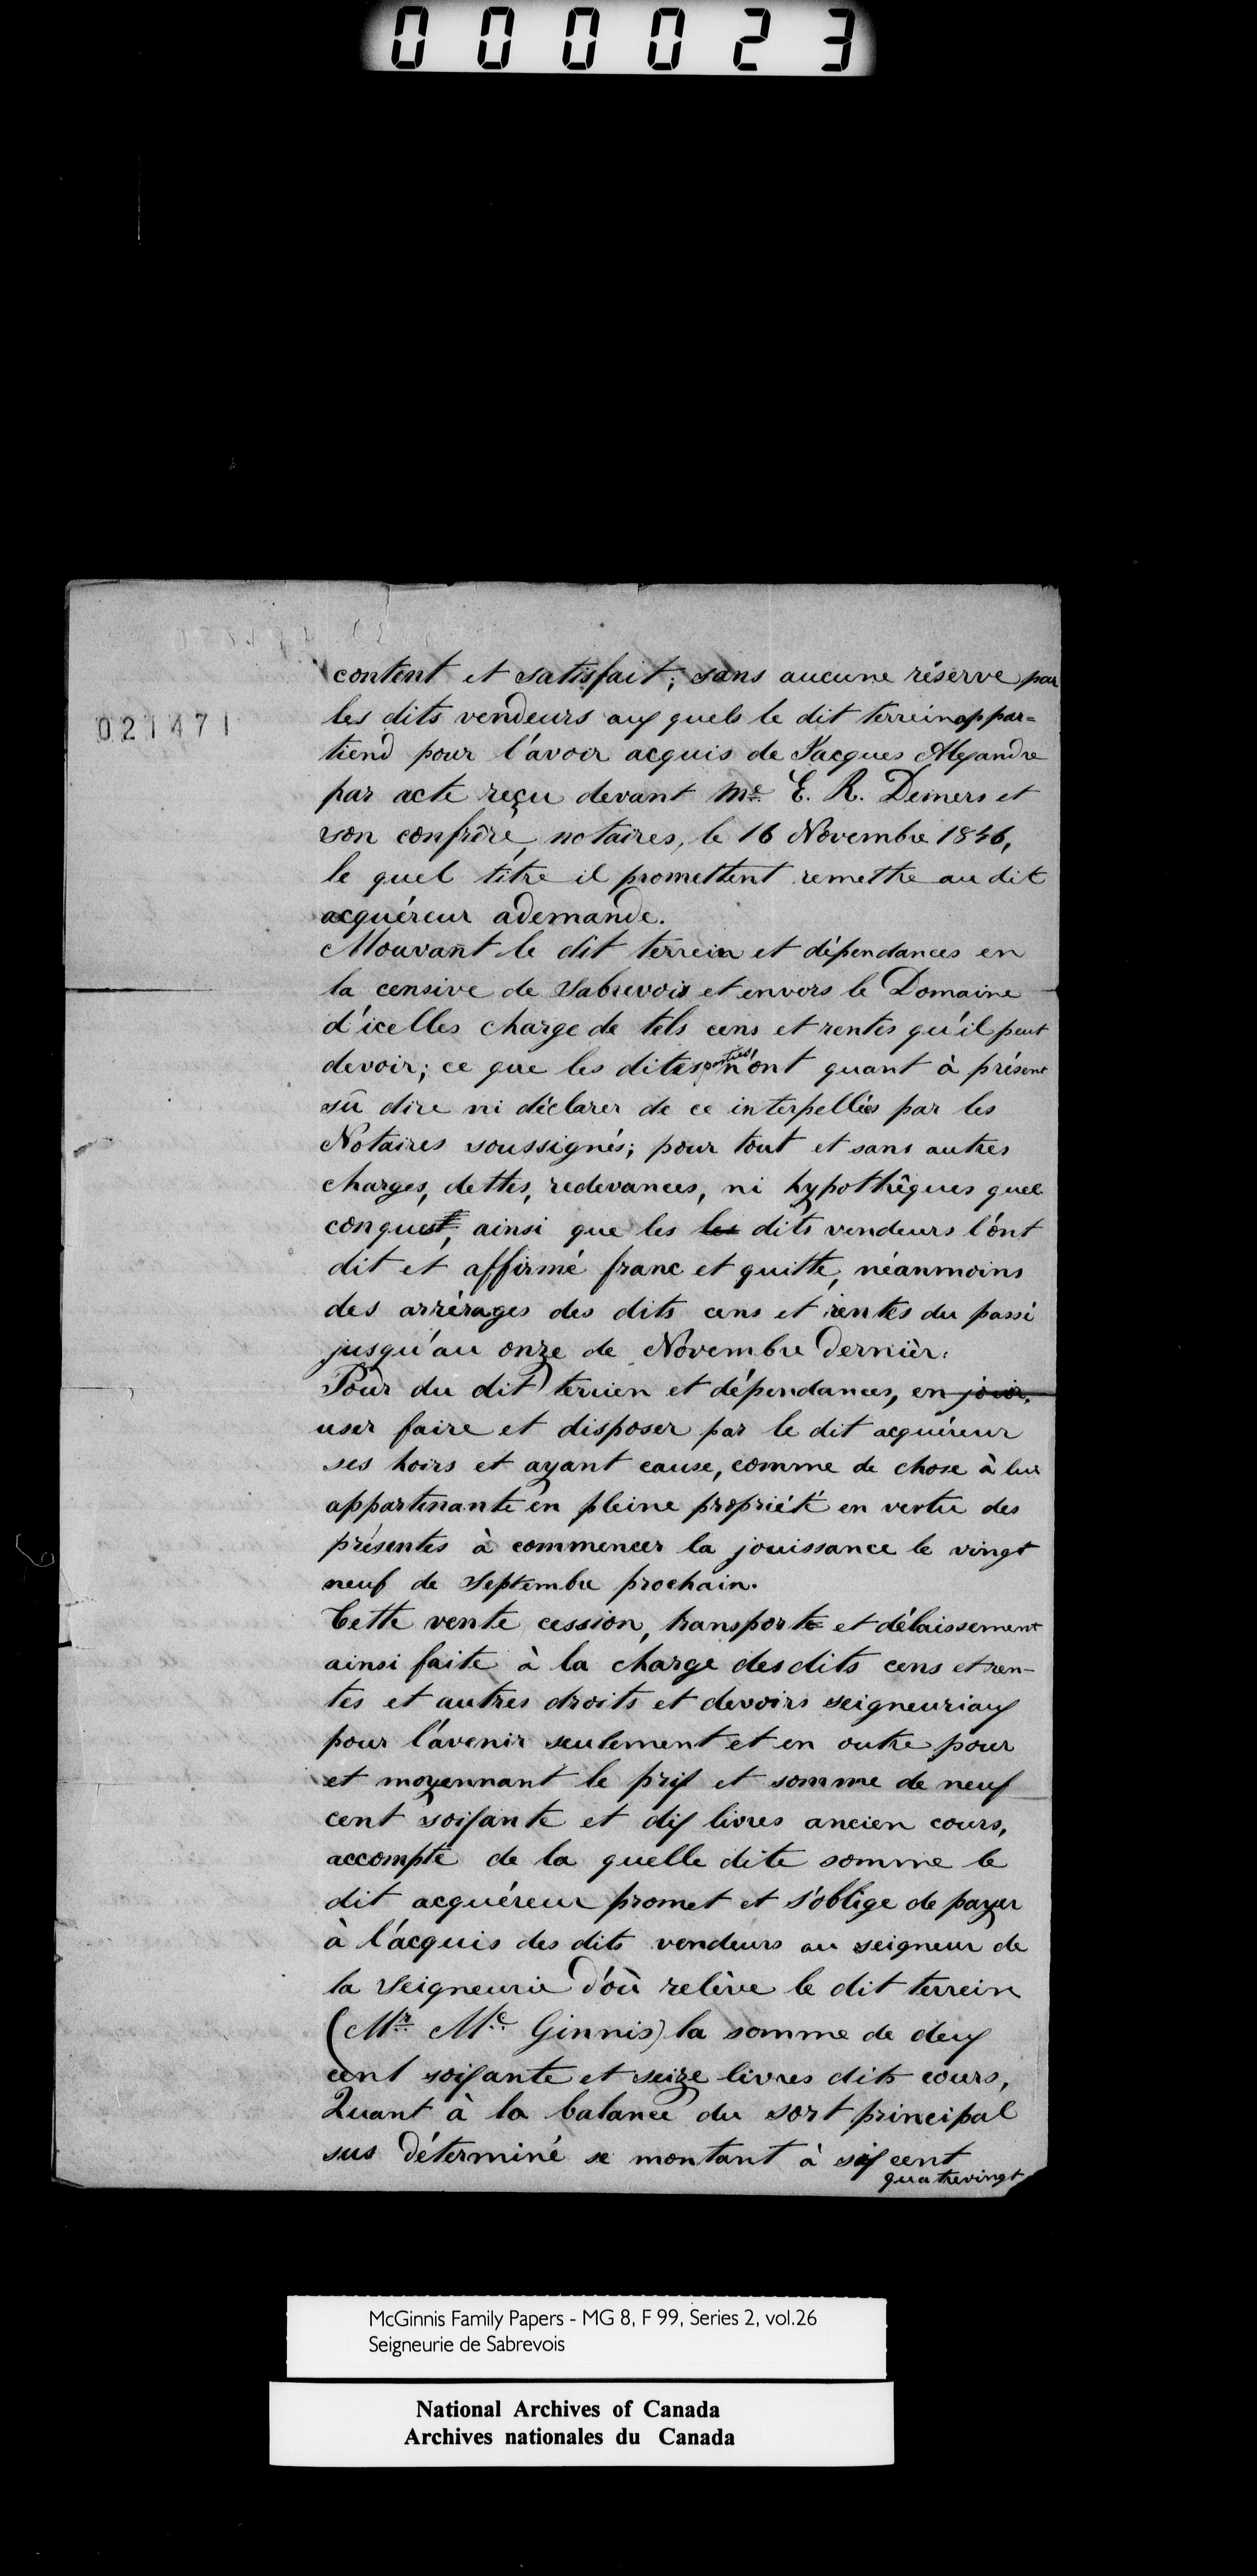 000023
021471
content et satisfait; sans aucune réserve par
les dits vendeurs aux quels le dit terrein appar=
tiend pour l'avoir acquis de Jacques Alexandre
par acte reçu devant Me. E. R. Demers et
son confrère, notaires, le 16 Novembre 1846,
le quel titre il promettent remettre au dit
acquéreur ademande.
Mouvant le dit terrein et dépendances en
la censive de Sabrevois et envers le Domaine
d'icelles charge de tels cens et rentes qu'il peut
devoir; ce que les dites parties n'ont quant à présent
sû dire ni déclarer de ce interpellées par les
Notaires soussignés; pour tout et sans autres
charges, dettes, redevances, ni hypothêques quel
conques, ainsi que les les dits vendeurs l'ont
dit et affirmé franc et quitte, néanmoins
des arrérages des dits cens et rentes du passé
jusqu'au onze de Novembre dernièr.
Pour du dit terrien et dépendances, en jouir,
user faire et disposer par le dit acquéreur
ses hoirs et ayant cause, comme de chose à lui
appartenante en pleine propriété en vertu des
présentes à commencer la jouissance le vingt
neuf de Septembre prochain.
Cette vente cession, transporte et délaissement
ainsi faite à la charge desdits cens et ren-
tes et autres droits et devoirs seigneuriaux
pour l'avenir seulement et en outre pour
et moyennant le prix et somme de neuf
cent soixante et dix livres ancien cours,
accompte de la quelle dite somme le
dit acquéreur promet et s'oblige de payer
à l'acquis des dits vendeurs au seigneur de
la Seigneurie d'où relève le dit terrein
(Mr. Mc. Ginnis) la somme de deux
cent soixante et seize livres dits cours,
Quant à la balance du sort principal
sus déterminé se montant à six cent
quatrevingt
McGinnis Family Papers - MG 8, F 99, Series 2, vol.26
Seigneurie de Sabrevois
National Archives of Canada
Archives nationales du Canada